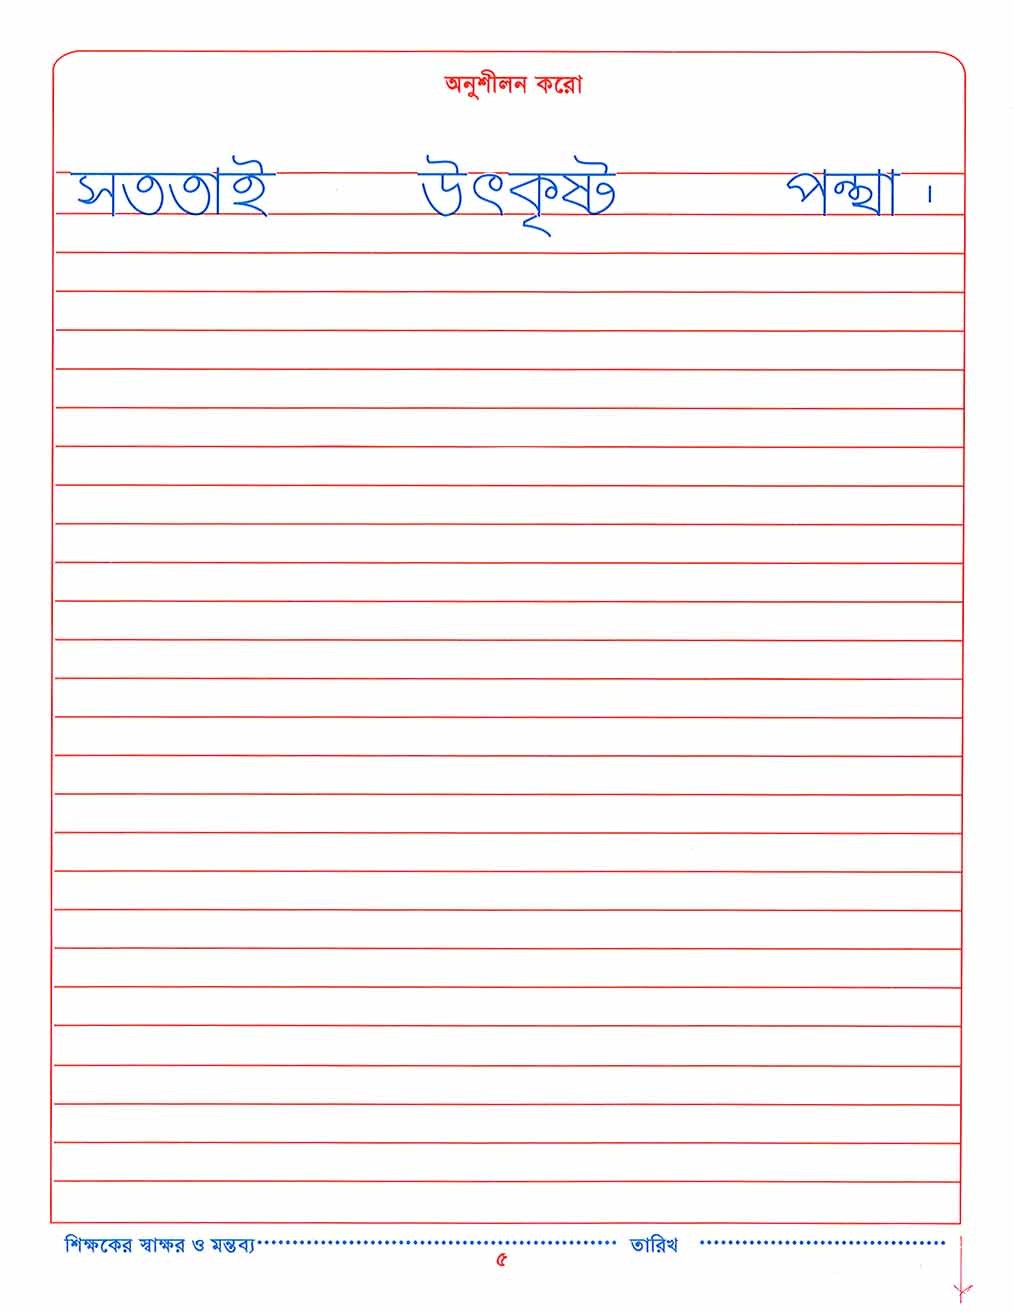 অনুশীলন করো
সততাই উৎকৃষ্ট পন্থা ।
শিক্ষকের স্বাক্ষর ও মন্তব্য ........................ তারিখ ........................
৫